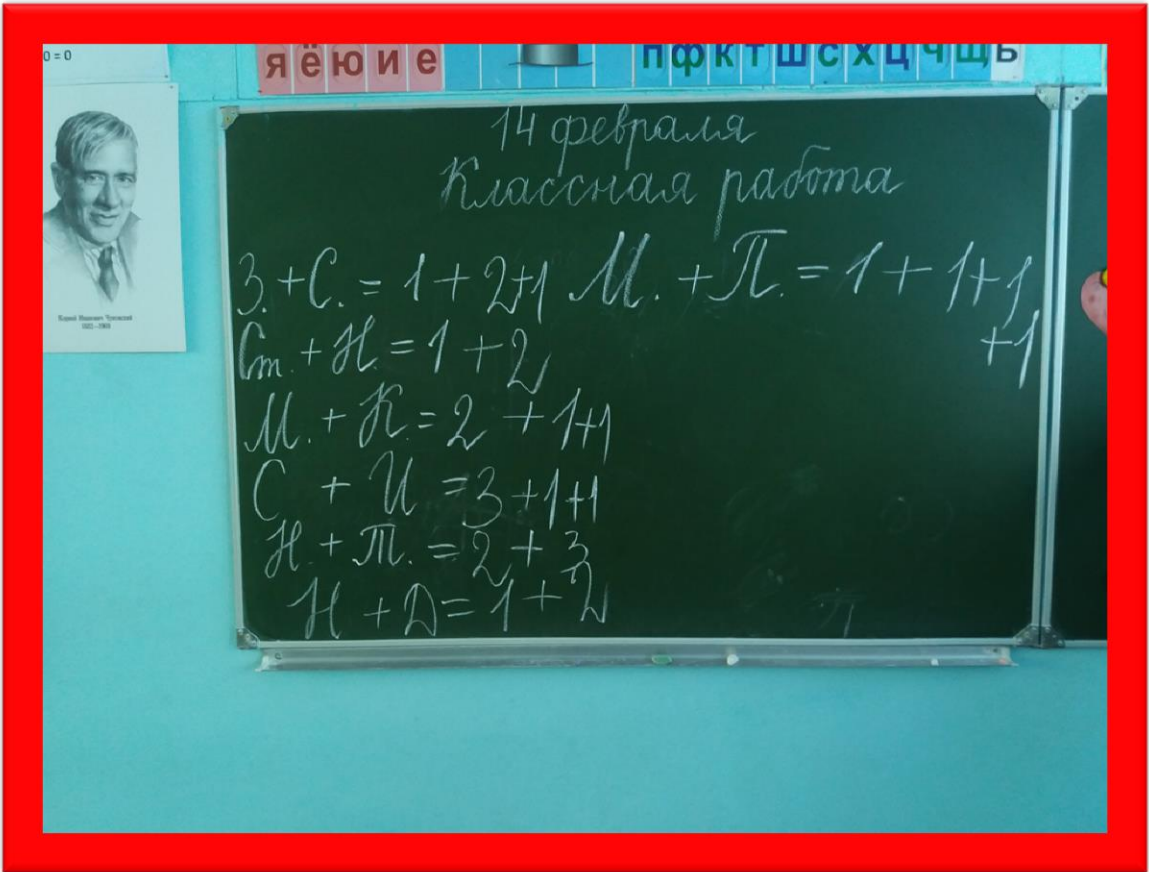 0 = 0
я ё ю и е
п ф к т ш с х ц ч щ ь
Корней Иванович Чуковский
1882–1969
14 февраля
Классная работа
З. + С. = 1 + 2+1
М. + П. = 1 + 1+1
+1
Ст. + Н. = 1 + 2
М. + К. = 2 + 1+1
С + И = 3 + 1+1
Н. + Т. = 2 + 3
Н + Д = 1 + 2